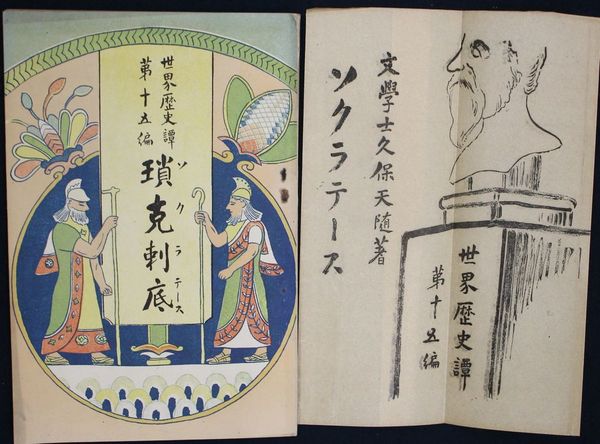 世界歴史譚
第十五編
瑣克刺底
ソクラテース
文學士久保天随著
ソクラテース
世界歴史譚
第十五編